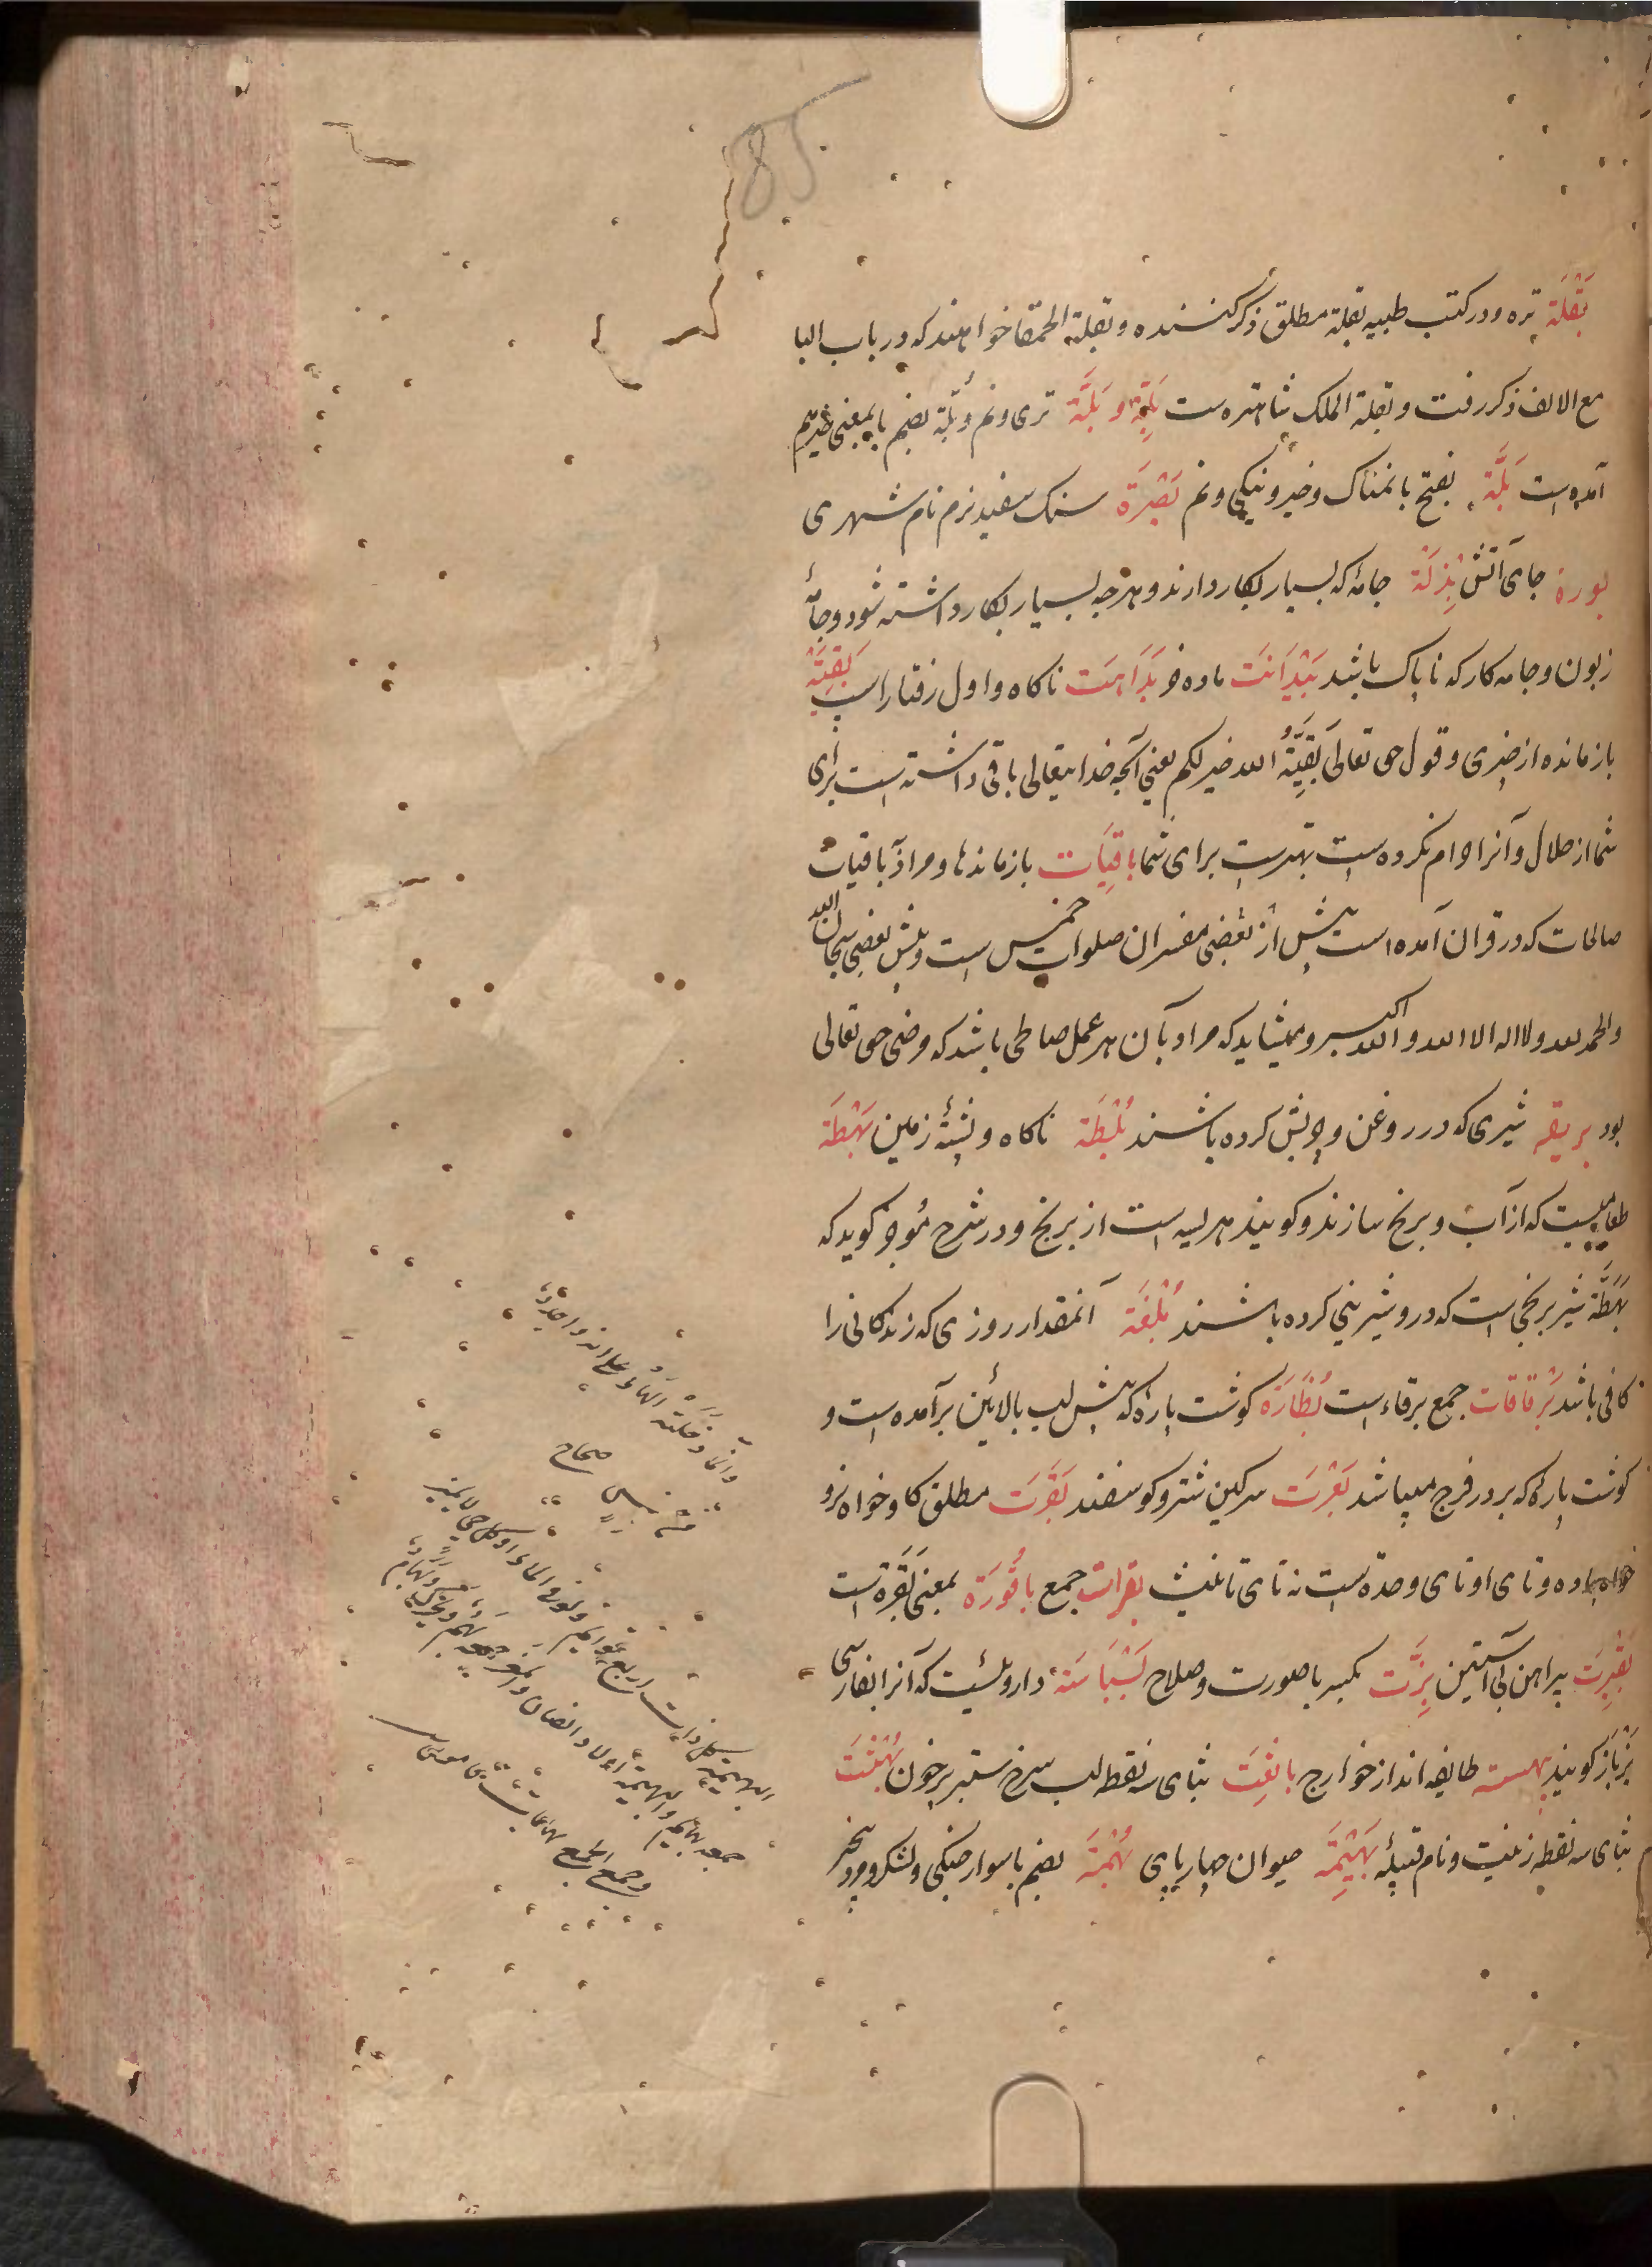 85
بَقْلَة تره و در کتب طبیه بقلة مطلق ذکر کنند و بقلة الحمقا خواهند که در باب البا
مع الالف ذکر رفت و بقلة الملک شاهتره ست بَلَّة تری و نم و بُلّة بضم با بمعنی هم
آمده است بَلَّة بفتح با نمناک و خیر و نیکی و نم بَصْرَة سنک سفید نرم نام شهری
بورة جای آتش بِذلَة جامهٔ که بسیار بکار دارند و هرچه بسیار بکار داشته شود و جامهٔ
زبون و جامه کار که ناپاک باشد بَیْدَانَت ماده خر بَدَاهَت ناکاه و اول رفتار اسپ بَقِیَّة
باز مانده از چیزی و قول حق تعالی بَقِیَّةُ الله خیر لکم یعنی آنچه خدایتعالی باقی داشته است برای
شما از حلال و آنرا حرام نکرده است بهترست برای شما باقِیَات باز ماندها و مراد بباقیات
صالحات که در قران آمده است پیش از بعضی مفسران صلوات خمس است و پیش بعضی سبحان الله
والحمد لله ولا اله الا الله والله اکبر و میشاید که مراد بآن هر عمل صالحی باشد که مرضی حق تعالی
بود بریقه شیری که در روغن و چربش کرده باشند بَلْطَة ناکاه و پشتهٔ زمین بَهْطَة
طعامیست که از آب و برنج سازند و کویند هریسه است از برنج و در شرح مُوجز کوید که
بَهَطَّة شیر برنجی است که درو شیرینی کرده باشند بُلْغَة آنمقدار روزی که زندکانی را
کافی باشد بُرقاقات جمع برقاء است بُظَارَة کوشت پارهٔ که پیش لب بالائین برآمده است و
کوشت پارهٔ که بر در فرج میباشد بَعْرَت سرکین شتر و کوسفند بَقَرَت مطلق کاو خواه نر و
خواه ماده و تای او تای وحدة است نه تای تانیث بقرات جمع باقُورَة بمعنی بَقَرَة است
بَقِیرَت پیراهن بی آستین بِزَّت بکسر با صورت و صلاح بَسْبَاسَة داروئیست که آنرا بفارسی
بَزْباز کویند بهسته طایفه اند از خوارج باثِعَت بثای سه نقطه لب سرخ ستبر پرخون بُهْثَت
بثای سه نقطه زنیست و نام قبیلهٔ بَهِیمَة حیوان چهارپای بُهْمَة بضم با سوار جنکی و لشکر و مرد
وانما دخلته الهاء علی انه واحد
صحاح
البهیمة کل ذات اربع قوایم ولو فی الماء او کل حی لا یمیز
جمعه بهایم والبهمة اولاد الضان والمعز جمعه بَهْم ویحرک و بِهَام
وجمع الجمع بهامات